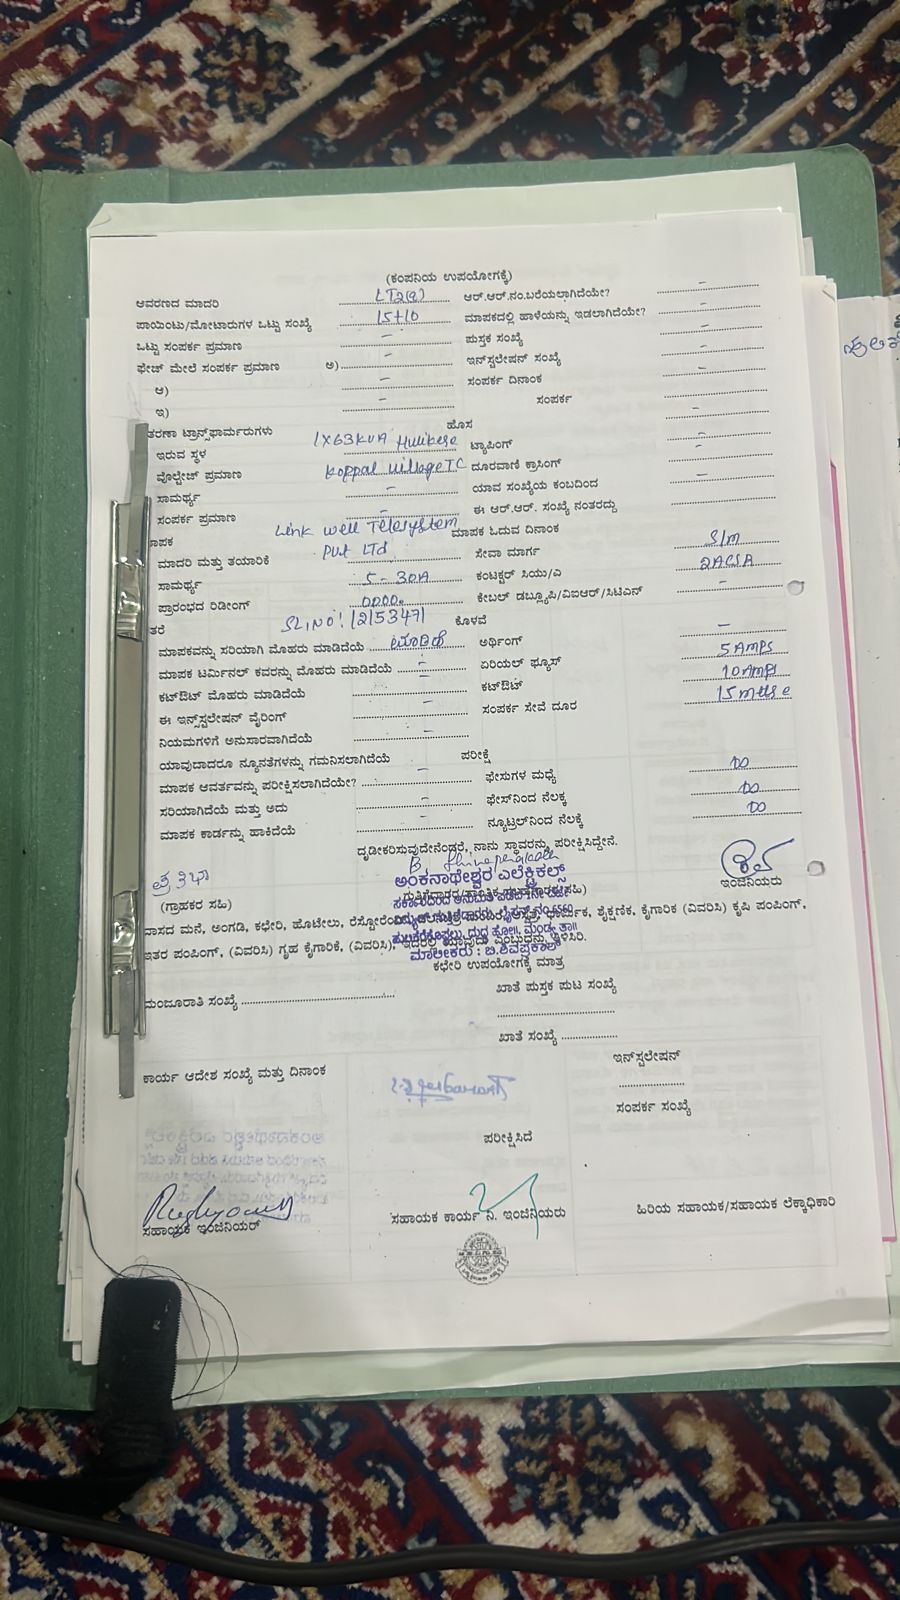 (ಕಂಪನಿಯ ಉಪಯೋಗಕ್ಕೆ)
ಆವರಣದ ಮಾದರಿ LT2(a) ಆರ್.ಆರ್.ನಂ.ಬರೆಯಲ್ಪಾಗಿದೆಯೇ? –
ಪಾಯಿಂಟು/ಮೋಟಾರುಗಳ ಒಟ್ಟು ಸಂಖ್ಯೆ 15+10 ಮಾಪಕದಲ್ಲಿ ಹಾಳೆಯನ್ನು ಇಡಲಾಗಿದೆಯೇ? –
ಒಟ್ಟು ಸಂಪರ್ಕ ಪ್ರಮಾಣ – ಪುಸ್ತಕ ಸಂಖ್ಯೆ –
ಫೇಜ್ ಮೇಲೆ ಸಂಪರ್ಕ ಪ್ರಮಾಣ ಅ) – ಇನ್‌ಸ್ಟಲೇಷನ್ ಸಂಖ್ಯೆ –
ಆ) – ಸಂಪರ್ಕ ದಿನಾಂಕ –
ಇ) – ಸಂಪರ್ಕ
ತರಣಾ ಟ್ರಾನ್ಸ್‌ಫಾರ್ಮರುಗಳು ಹೊಸ –
ಇರುವ ಸ್ಥಳ 1X63KVA Hulikese ಟ್ಯಾಪಿಂಗ್ –
ವೋಲ್ಟೇಜ್ ಪ್ರಮಾಣ Koppal village TC ದೂರವಾಣಿ ಕ್ರಾಸಿಂಗ್ –
ಸಾಮರ್ಥ್ಯ – ಯಾವ ಸಂಖ್ಯೆಯ ಕಂಬದಿಂದ –
ಸಂಪರ್ಕ ಪ್ರಮಾಣ – ಈ ಆರ್.ಆರ್. ಸಂಖ್ಯೆ ನಂತರದ್ದು –
ಾಪಕ Link well Telesystem ಮಾಪಕ ಓದುವ ದಿನಾಂಕ
ಮಾದರಿ ಮತ್ತು ತಯಾರಿಕೆ Pvt Ltd ಸೇವಾ ಮಾರ್ಗ S/m
ಸಾಮರ್ಥ್ಯ 5-30A ಕಂಟಕ್ಟರ್ ಸಿಯು/ಎ
ಪ್ರಾರಂಭದ ರೀಡಿಂಗ್ 0000. ಕೇಬಲ್ ಡಬ್ಲ್ಯೂಪಿ/ವಿಐಆರ್/ಸಿಟಿಎನ್ –
ತರೆ SL.NO: 12153471 ಕೊಳವೆ
ಮಾಪಕವನ್ನು ಸರಿಯಾಗಿ ಮೊಹರು ಮಾಡಿದೆಯೆ ಮಾಡಿದೆ ಅರ್ಥಿಂಗ್ –
ಮಾಪಕ ಟರ್ಮಿನಲ್ ಕವರನ್ನು ಮೊಹರು ಮಾಡಿದೆಯೆ – ಏರಿಯಲ್ ಫ್ಯೂಸ್ 5 AMPS
ಕಟ್‌ಔಟ್ ಮೊಹರು ಮಾಡಿದೆಯೆ – ಕಟ್‌ಔಟ್ 10 AMPS
ಈ ಇನ್‌ಸ್ಟಲೇಷನ್ ವೈರಿಂಗ್ – ಸಂಪರ್ಕ ಸೇವೆ ದೂರ
ನಿಯಮಗಳಿಗೆ ಅನುಸಾರವಾಗಿದೆಯೆ –
ಯಾವುದಾದರೂ ನ್ಯೂನತೆಗಳನ್ನು ಗಮನಿಸಲಾಗಿದೆಯೆ ಪರೀಕ್ಷೆ
ಮಾಪಕ ಆವರ್ತವನ್ನು ಪರೀಕ್ಷಿಸಲಾಗಿದೆಯೇ? – ಫೇಸುಗಳ ಮಧ್ಯೆ DO
ಸರಿಯಾಗಿದೆಯೆ ಮತ್ತು ಅದು – ಫೇಸ್‌ನಿಂದ ನೆಲಕ್ಕೆ DO
ಮಾಪಕ ಕಾರ್ಡನ್ನು ಹಾಕಿದೆಯೆ – ನ್ಯೂಟ್ರಲ್‌ನಿಂದ ನೆಲಕ್ಕೆ DO
ದೃಢೀಕರಿಸುವುದೇನೆಂಡರೆ, ನಾನು ಸ್ಥಾವರನ್ನು ಪರೀಕ್ಷಿಸಿದ್ದೇನೆ.
ಅಂಕನಾಥೇಶ್ವರ ಎಲೆಕ್ಟ್ರಿಕಲ್ಸ್
(ಗ್ರಾಹಕರ ಸಹಿ) ಇಂಜಿನಿಯರು
ವಾಸದ ಮನೆ, ಅಂಗಡಿ, ಕಛೇರಿ, ಹೊಟೇಲು, ಧಾರ್ಮಿಕ, ಶೈಕ್ಷಣಿಕ, ಕೈಗಾರಿಕ (ವಿವರಿಸಿ) ಕೃಷಿ ಪಂಪಿಂಗ್,
ಇತರ ಪಂಪಿಂಗ್, (ವಿವರಿಸಿ) ಗೃಹ ಕೈಗಾರಿಕೆ, (ವಿವರಿಸಿ), ತಿಳಿಸಿರಿ.
ಮಾಲೀಕರು : ಬಿ.ಶಿವಪ್ರಕಾಶ್
ಕಛೇರಿ ಉಪಯೋಗಕ್ಕೆ ಮಾತ್ರ
ಮಂಜೂರಾತಿ ಸಂಖ್ಯೆ ಖಾತೆ ಪುಸ್ತಕ ಪುಟ ಸಂಖ್ಯೆ
ಖಾತೆ ಸಂಖ್ಯೆ
ಕಾರ್ಯ ಆದೇಶ ಸಂಖ್ಯೆ ಮತ್ತು ದಿನಾಂಕ ಇನ್‌ಸ್ಟಲೇಷನ್
ಸಂಪರ್ಕ ಸಂಖ್ಯೆ
ಪರೀಕ್ಷಿಸಿದೆ
ಸಹಾಯಕ ಇಂಜಿನಿಯರ್ ಸಹಾಯಕ ಕಾರ್ಯ ನಿ. ಇಂಜಿನಿಯರು ಹಿರಿಯ ಸಹಾಯಕ/ಸಹಾಯಕ ಲೆಕ್ಕಾಧಿಕಾರಿ